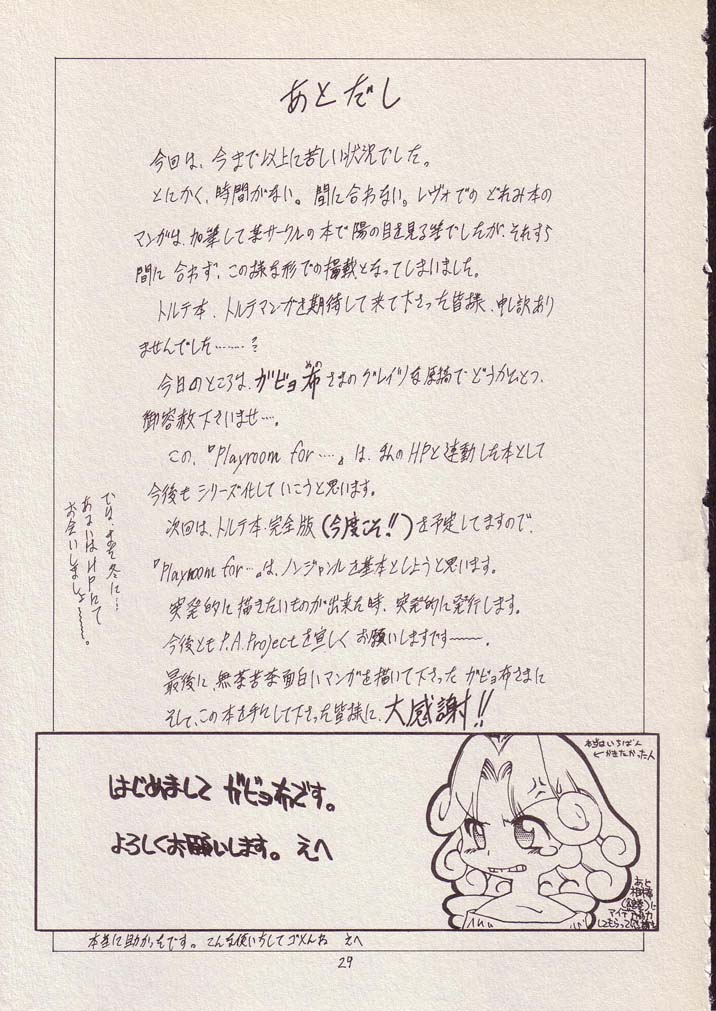 あとがき
今回は、今まで以上に苦しい状況でした。
とにかく、時間がない。間に合わない。レヴォでの どれみ本の
マンガは、加筆して某サークルの本で陽の目を見る筈でしたが、それすら
間に合わず、この様な形での掲載となってしまいました。
トルテ本、トルテマンガを期待して来て下さった皆様、申し訳あり
ませんでした………?
今日のところは、ガビョ布さまのグレイツな原稿でどうかひとつ、
御容赦下さいませ…。
この、『Playroom for …』は、まんのHPと連動した本として
今後もシリーズ化していこうと思います。
次回は、トルテ本・完全版(今度こそ!!)を予定してますので、
『Playroom for …』は、ノンジャンルを基本としようと思います。
突発的に描きたいものが出来た時、突発的に発行します。
今後ともP.A.Projectを宜しくお願いしますです〜〜。
最後に、無茶苦茶面白いマンガを描いて下さった ガビョ布さまに
そして、この本を手にして下さった皆様に、大感謝!!
では、また冬に…
あるいはHPにて
お会いしましょ〜〜。
はじめまして ガビョ布です。
よろしくお願いします。 えへ
本当はいちばん
←かきたかった人
あと
してもらって
本当に助かったです。こんな使いちしてゴメンね えへ
29